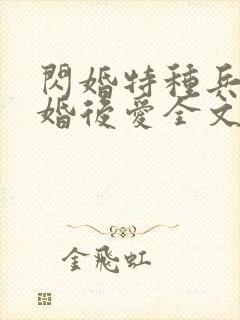 閃婚特種兵
婚後愛全文
金飛虹